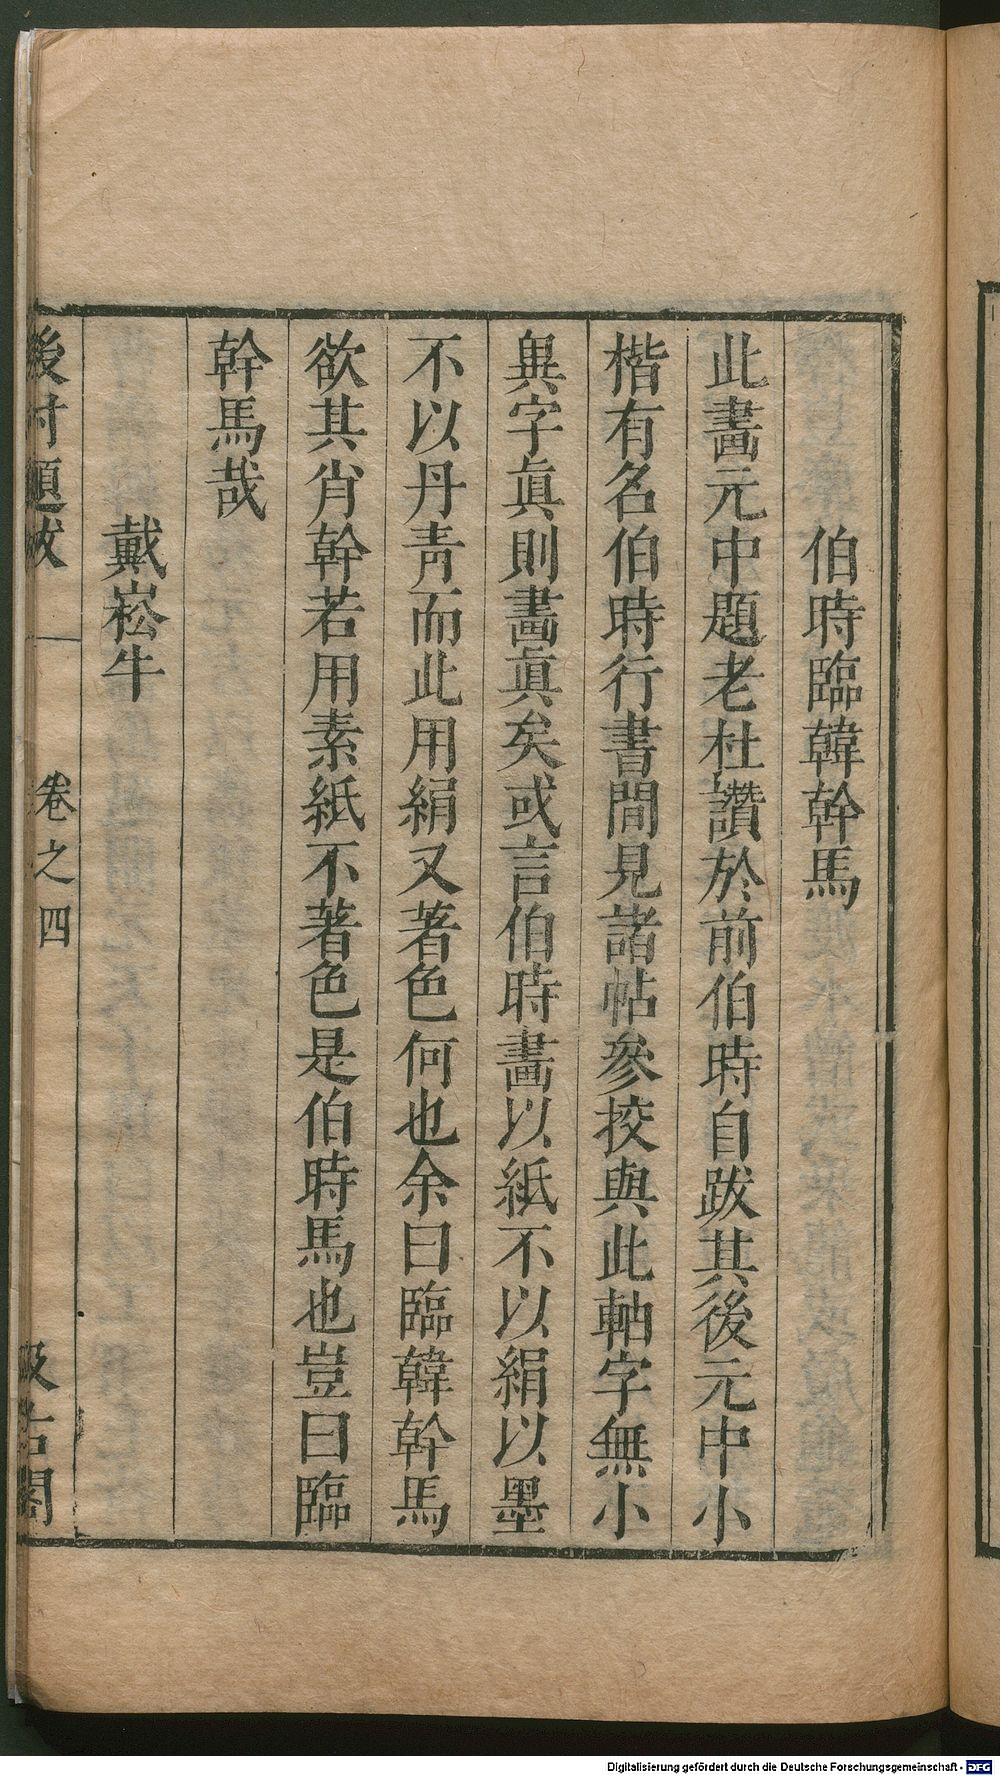 伯時臨韓幹馬
此畫元中題老杜讚於前伯時自跋其後元中小
楷有名伯時行書間見諸帖參挍與此軸字無小
異字眞則畫眞矣或言伯時畫以紙不以絹以墨
不以丹靑而此用絹又著色何也余曰臨韓幹馬
欲其肖幹若用素紙不著色是伯時馬也豈曰臨
幹馬哉
戴嵩牛
後村題跋 卷之四 汲古閣
Digitalisierung gefördert durch die Deutsche Forschungsgemeinschaft - DFG